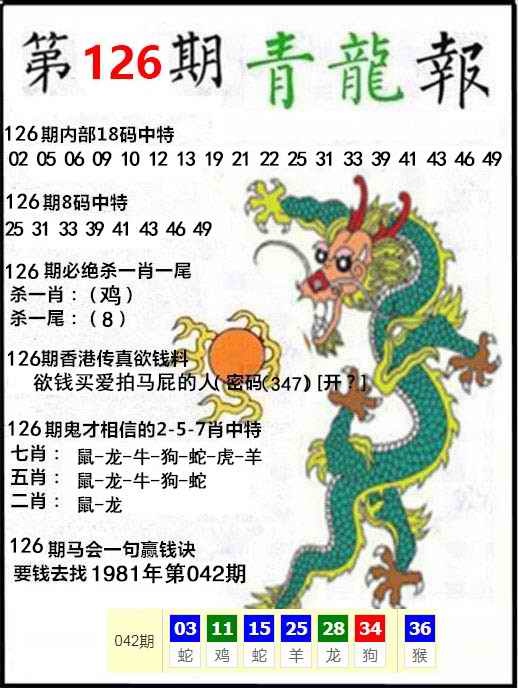 第126期青龍報
126期内部18码中特
02 05 06 09 10 12 13 19 21 22 25 31 33 39 41 43 46 49
126期8码中特
25 31 33 39 41 43 46 49
126期必绝杀一肖一尾
杀一肖：（鸡）
杀一尾：（8）
126期香港传真欲钱料
欲钱买爱拍马屁的人(密码(347)[开？]
126期鬼才相信的2-5-7肖中特
七肖： 鼠-龙-牛-狗-蛇-虎-羊
五肖： 鼠-龙-牛-狗-蛇
二肖： 鼠-龙
126期马会一句赢钱诀
要钱去找1981年第042期
042期 03 11 15 25 28 34 36
蛇 鸡 蛇 羊 龙 狗 猴